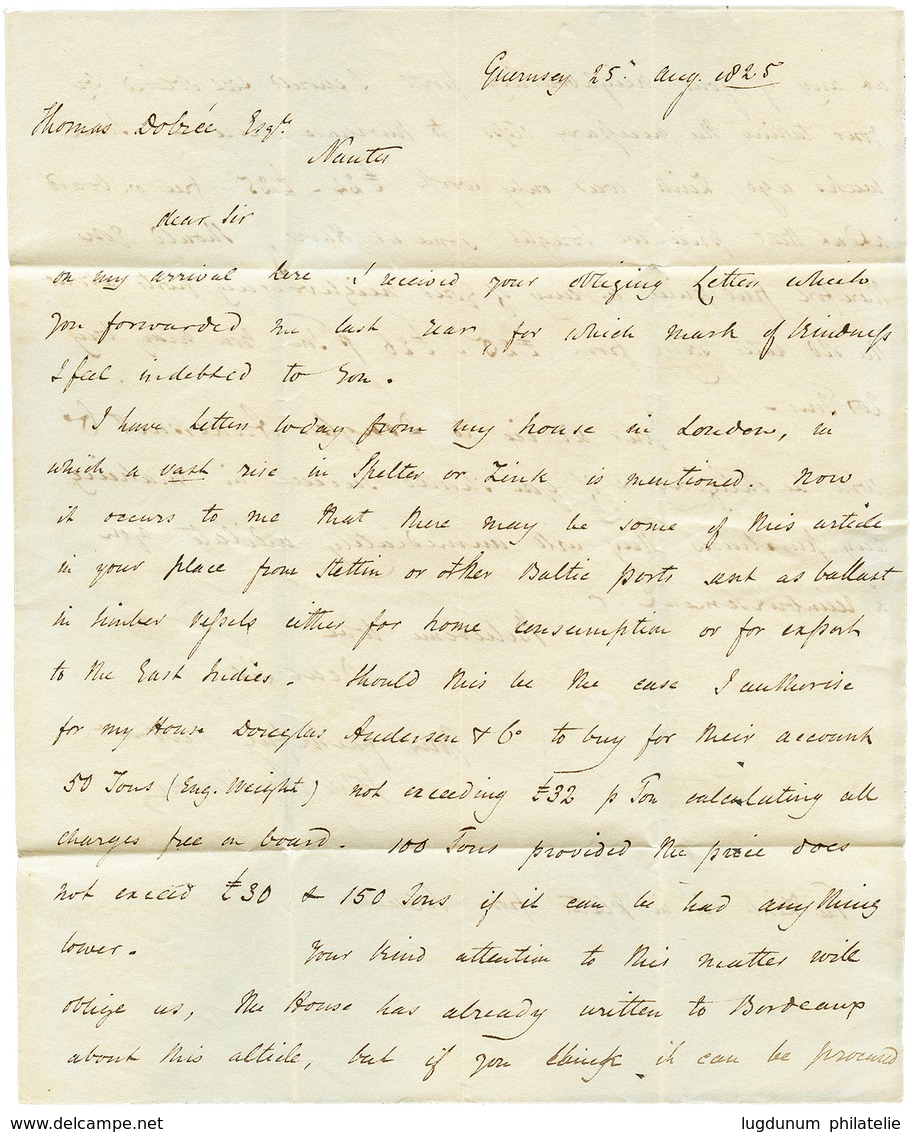 Guernsey 25th Aug. 1825
Thomas Dobrée Esqre
Nantes
dear Sir
on my arrival here I received your obliging Letter which
you forwarded me last year, for which mark of kindness
I feel indebted to you.
I have Letters today from my house in London, in
which a vast rise in Spelter or Zink is mentioned. Now
it occurs to me that there may be some of this article
in your place from Stettin or other Baltic ports sent as ballast
in timber vessels either for home consumption or for export
to the East Indies. Should this be the case I authorise
for my House Douglas Anderson & Co to buy for their account
50 Tons (Eng. Weight) not exceeding £32 p Ton calculating all
charges free on board. 100 Tons provided the price does
not exceed £30 & 150 Tons if it can be had any thing
lower. Your kind attention to this matter will
oblige us, the House has already written to Bordeaux
about this alticle, but if you think it can be procured
www.delcampe.net lugdunum philatelie